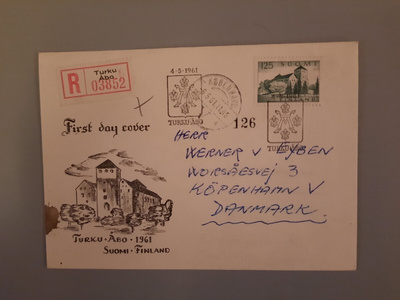 R
Turku
Åbo
03852
4-3-1961
TURKU-ÅBO
125
SUOMI
TURKU-ÅBO
First day cover
126
HERR
WERNER V EYBEN
WORSÅESVEJ 3
KÖPENHAMN V
DANMARK.
TURKU · ÅBO · 1961
SUOMI · FINLAND